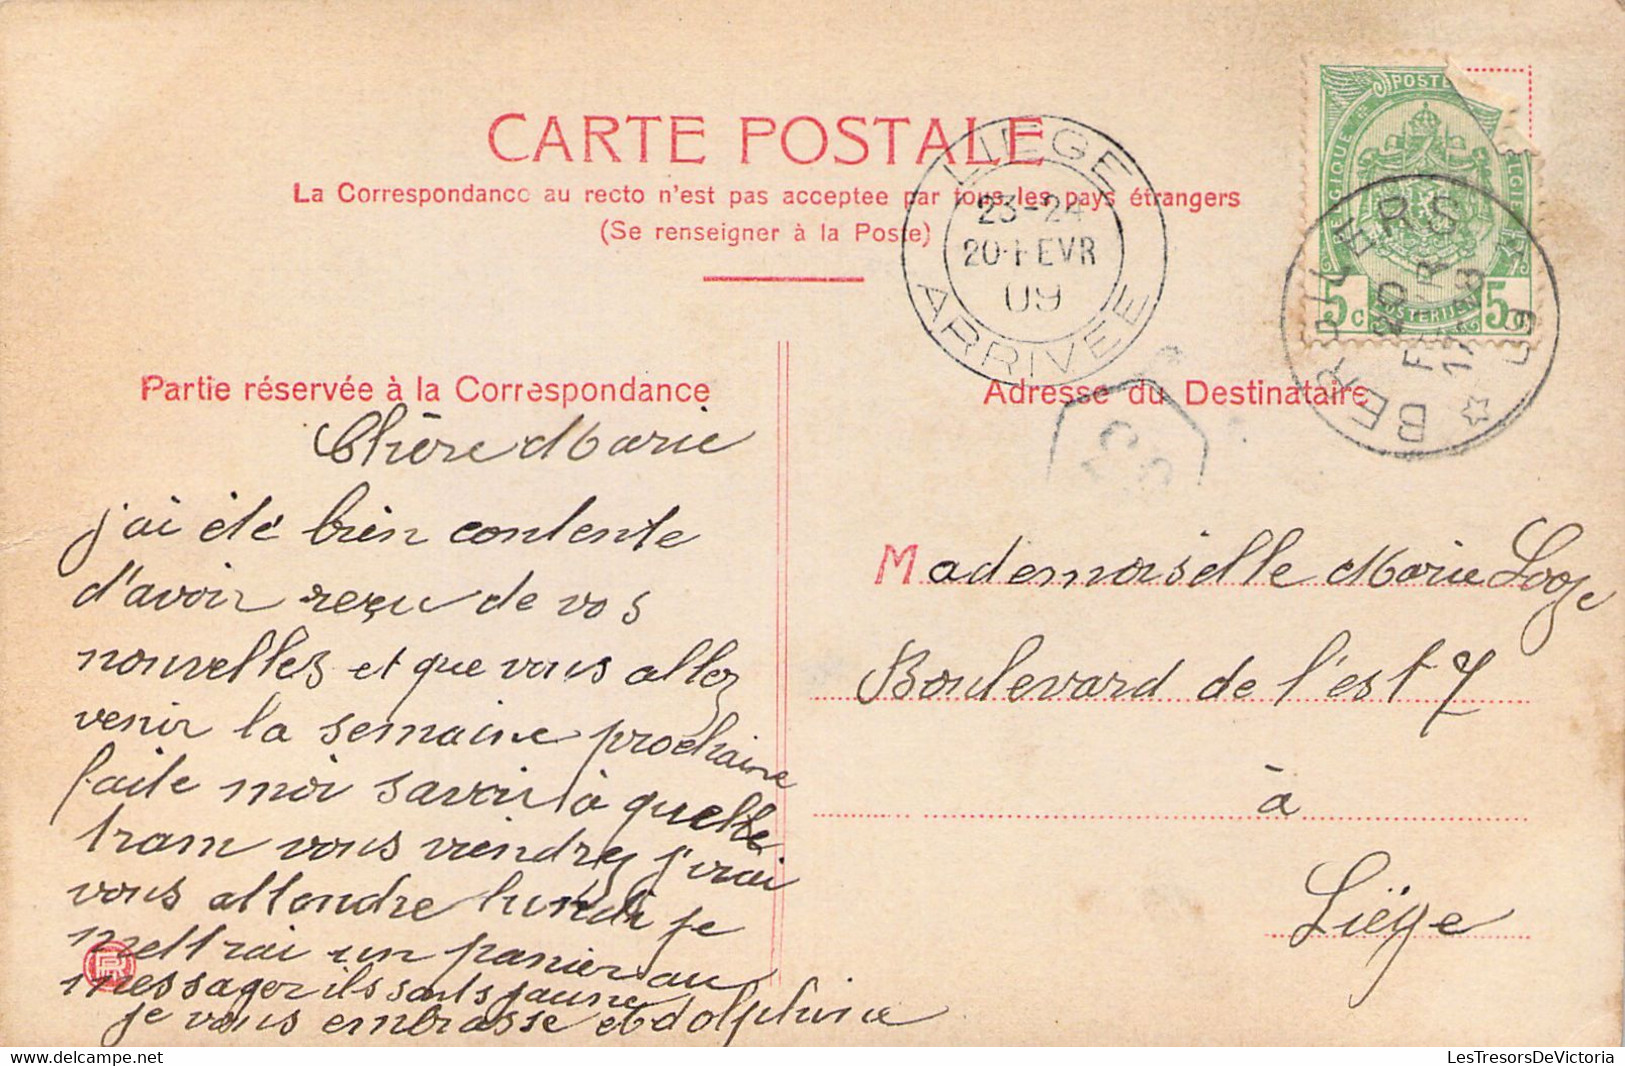 CARTE POSTALE
La Correspondance au recto n'est pas acceptee par tous les pays étrangers
(Se renseigner à la Poste)
LIEGE
23-24
20 FEVR
09
ARRIVEE
POSTE
BELGIQUE
5c
5
BERGILERS
20
FEVR
17
09
Partie réservée à la Correspondance
Adresse du Destinataire
Chère Marie
j'ai été bien contente
d'avoir reçu de vos
nouvelles et que vous allez
venir la semaine prochaine
faite moi savoir à quelle
tram vous viendrez j'irai
vous attendre lundi je
mettrai un panier au
messager ils sont jaune
je vous embrasse Adolphine
Mademoiselle Marie Looze
Boulevard de l'est 7
à
Liége
LesTresorsDeVictoria